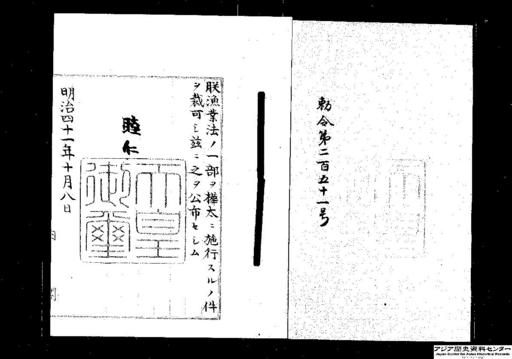 勅令第二百五十一号
朕漁業法ノ一部ヲ樺太ニ施行スルノ件
ヲ裁可シ茲ニ之ヲ公布セシム
睦仁
天皇
御璽
明治四十一年十月八日
アジア歴史資料センター
Japan Center for Asian Historical Records